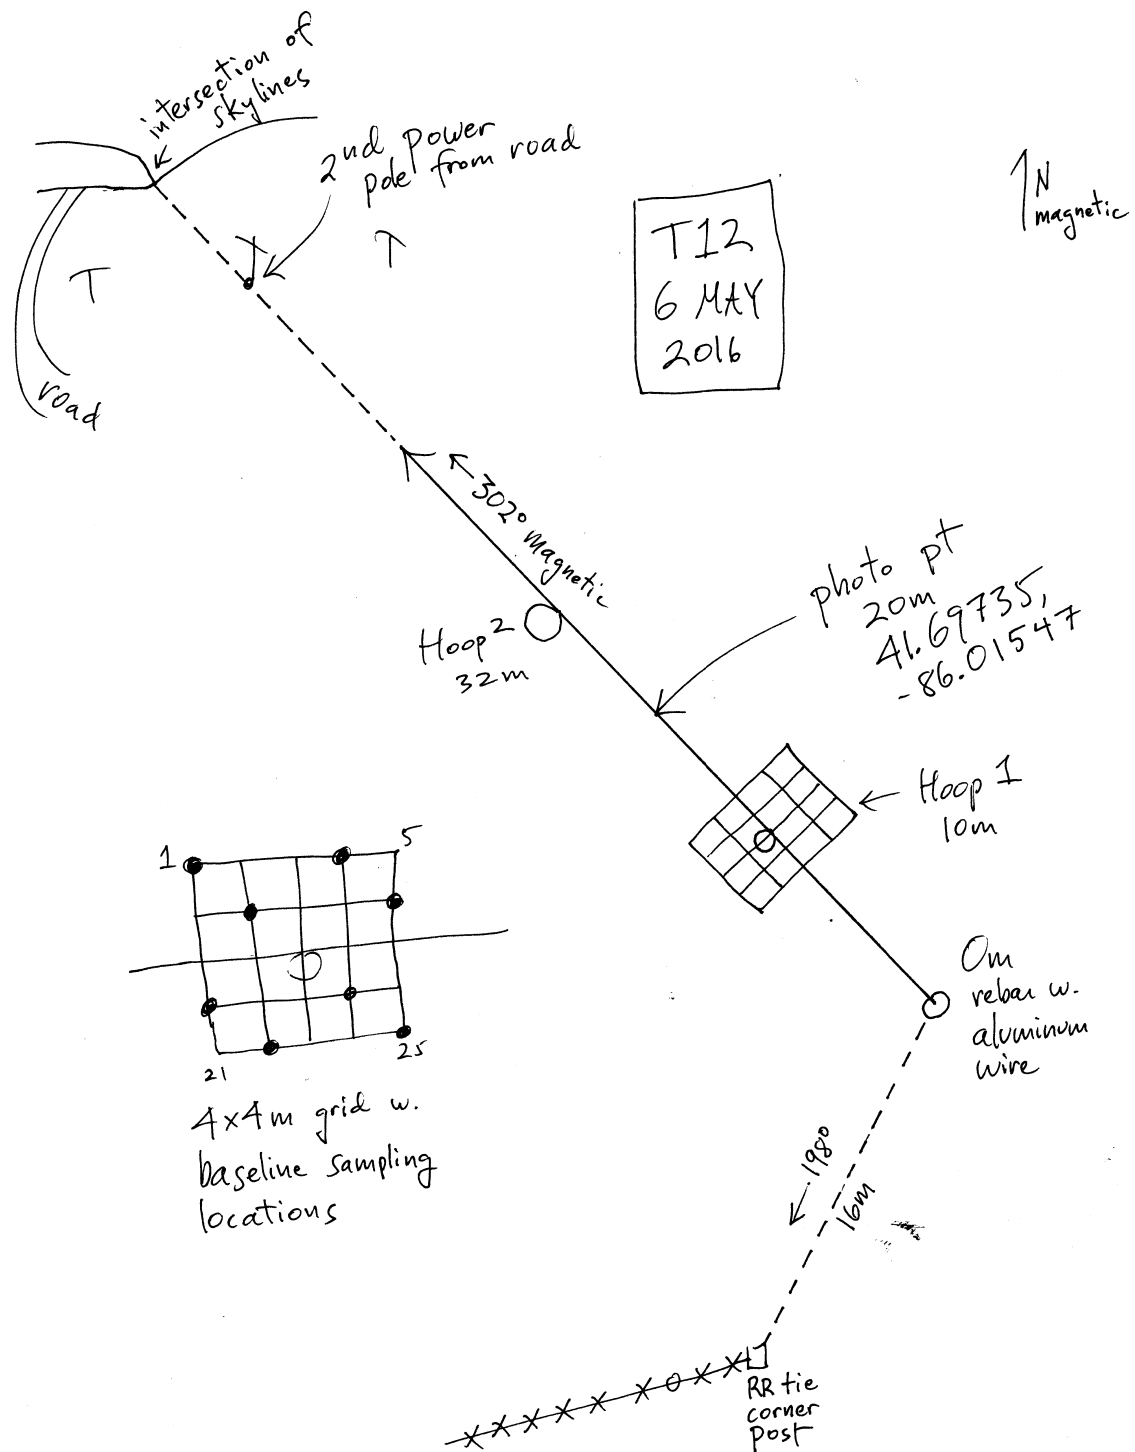 intersection of
skylines
2nd power
pole from road
N
magnetic
T12
6 MAY
2016
road
302° magnetic
photo pt
20m
41.69735,
-86.01547
Hoop 2
32m
Hoop 1
10m
1
5
21
25
4x4m grid w.
baseline sampling
locations
0m
rebar w.
aluminum
wire
198°
16m
RR tie
corner
post